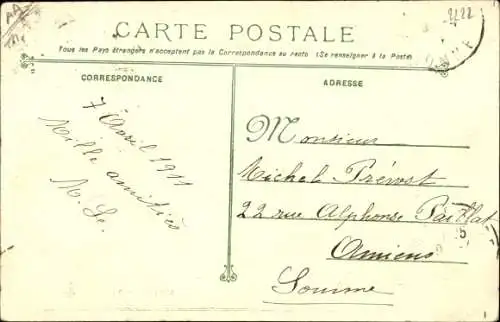 CARTE POSTALE
Tous les Pays étrangers n'acceptent pas la Correspondance au recto (Se renseigner à la Poste)
CORRESPONDANCE
7 Avril 1911
Mille amitiés
M. L.
ADRESSE
Monsieur
Michel Prévost
22 rue Alphonse
Amiens
Somme